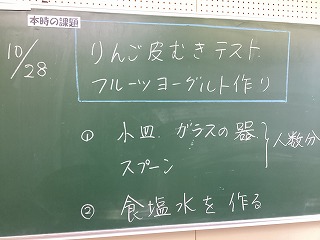 本時の課題
10/28
りんご皮むきテスト
フルーツヨーグルト作り
① 小皿 ガラスの器 人数分
スプーン
② 食塩水を作る